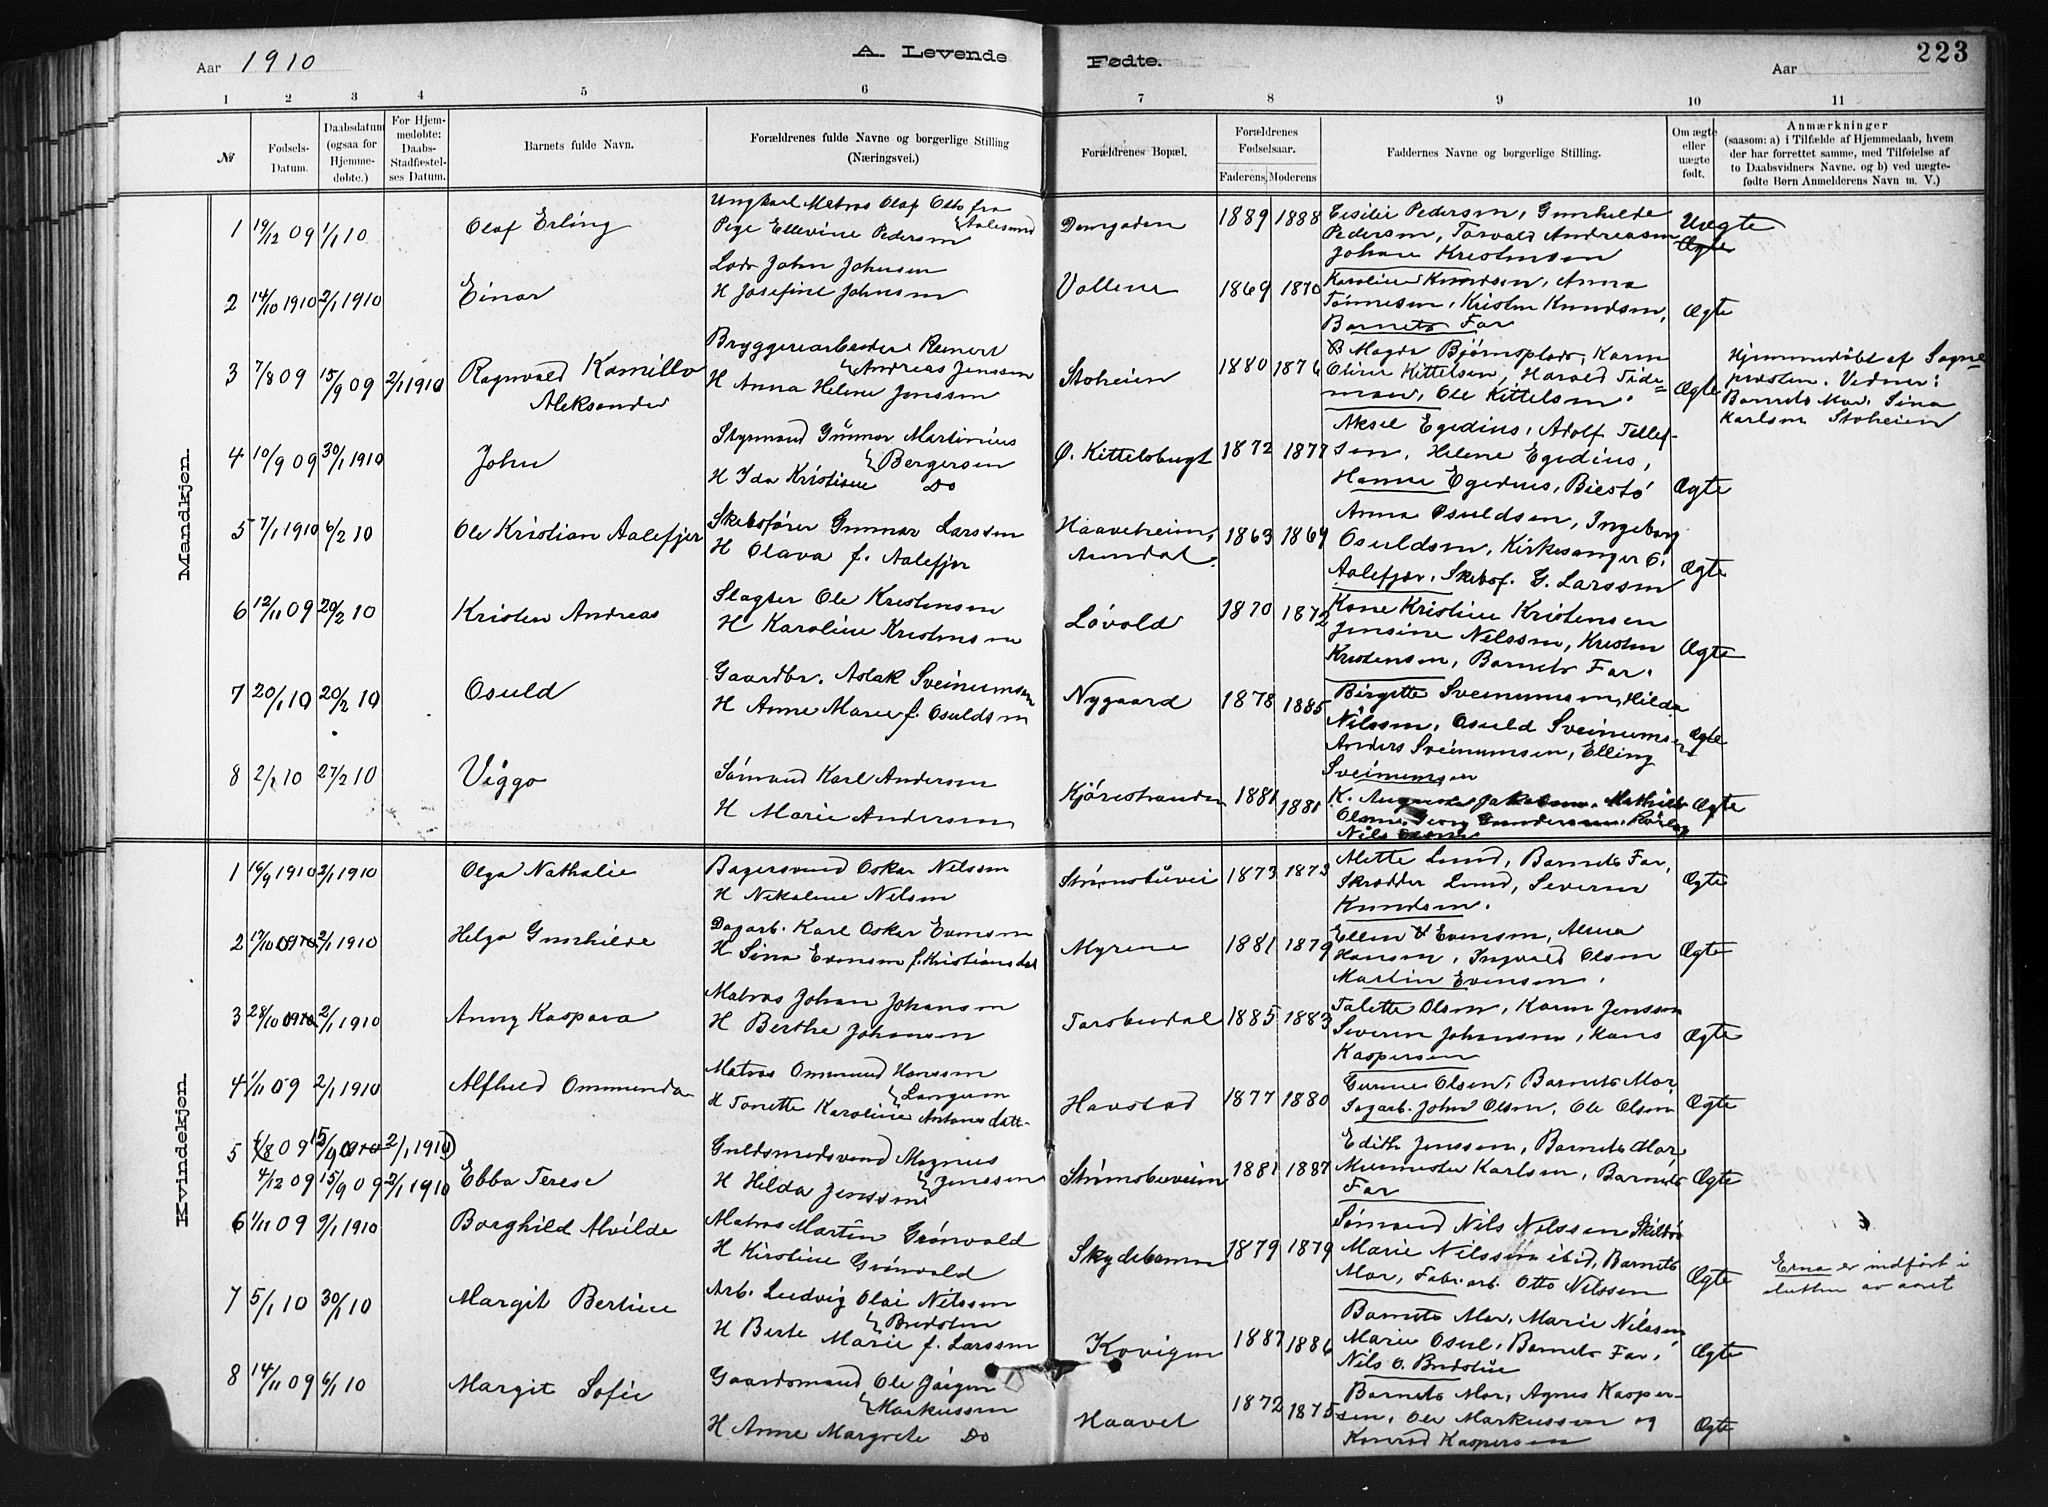 Aar 1910
A. Levende
Fødte.
Aar
223
1 2 3 4 5 6 7 8 9 10 11
№
Fødsels-Datum.
Daabsdatum (ogsaa for Hjemme-døbte.)
For Hjem-medøbte: Daabs-Stadfæstel-ses Datum.
Barnets fulde Navn.
Forældrenes fulde Navne og borgerlige Stilling (Næringsvei.)
Forældrenes Bopæl.
Forældrenes Fødselsaar.
Faderens, Moderens
Faddernes Navne og borgerlige Stilling.
Om ægte eller uægte født.
Anmærkninger
(saasom: a) i Tilfælde af Hjemmedaab, hvem
der har forrettet samme, med Tilføielse af
to Daabsvidners Navne. og b) ved uægte-
fødte Børn Anmelderens Navn m. V.)
Mandkjøn.
1 19/12 09 1/1 10 Olaf Erling
Ungkarl Matros Olaf Otto fra Aalesund
Pige Ellevine Pedersen
1889 1888
Cesilie Pedersen, Gunhilde
Pedersen, Torvald Andreasen
Johane Kristensen
Uægte
Ægte
2 14/10 1910 2/1 1910 Einar
John Johnsen
H Josefine Johnsen
Vollene 1869 1870
Karoline Knudsen, Anna
Tønnesen, Kristen Knudsen,
Barnets Far
Ægte
3 7/8 09 15/9 09 2/1 1910 Ragnvald Kamillo
Aleksander
Bryggeriarbeider Reinert
Andreas Jenssen
H Anna Helene Jenssen
Stoheien 1880 1876
Magda Bjørnsplads, Karen
Oline Kittelsen, Harald Tide=
man, Ole Kittelsen.
Ægte
Hjemmedøbt af Sogne=
presten. Vidner:
Barnets Mor. Sina
Karlsen Stoheien
4 10/9 09 30/1 1910 John
Styrmand Gunnar Martinius
Bergersen
H Ida Kristine Do
Ø. Kittelsbugt 1872 1877
Aksel Egedius, Adolf Tellef-
sen, Helene Egedius,
Hanna Egedius, Biestø
Ægte
5 7/1 1910 6/2 10 Ole Kristian Aalefjær
Skibsfører Gunnar Larssen
H Olava f. Aalefjær
Haaveheien,
Arendal. 1863 1869
Anna Osuldsen, Ingeborg
Osuldsen, Kirkesanger O.
Aalefjær, Skibsf. G. Larssen
Ægte
6 12/11 09 20/2 10 Kristen Andreas
Slagter Ole Kristensen
H Karoline Kristensen
Løvold 1870 1872
Kone Kristine Kristensen
Jensine Nilssen, Kristen
Kristensen, Barnets Far.
Ægte
7 20/1 10 20/2 10 Osuld
Gaardbr. Aslak Sveinumsen
H Anne Marie f. Osuldsen
Nygaard 1878 1885
Birgitte Sveinumsen, Hilda
Nilssen, Osuld Sveinumsen
Anders Sveinumsen, Elling
Sveinumsen
Ægte
8 2/1 10 27/2 10 Viggo
Sømand Karl Andersen
H Marie Andersen
Kjørestranden 1881 1881
Ægte
Kvindekjøn.
1 16/9 1910 2/1 1910 Olga Nathalie
Bagersvend Oskar Nilssen
H Nikoline Nilsen
Strømsbuvei 1873 1873
Mette Lund, Barnets Far,
Skrædder Lund, Severin
Knudsen.
Ægte
2 17/10 0910 2/1 1910 Helga Gunhilde
Dagarb. Karl Oskar Evensen
H Sina Evensen f. Kristiansdat
Myrene 1881 1879
Ellen Evensen, Alma
Hansen, Ingvald Olsen
Martin Evensen.
Ægte
3 28/10 0910 2/1 1910 Anny Kaspara
Matros Johan Johansen
H Berthe Johansen
Torsbudal 1885 1883
Talette Olsen, Karen Jenssen
Severin Johansen, Hans
Kaspersen
Ægte
4 1/11 09 2/1 1910 Alfhild Ommunda
Matros Ommund Hanssen
Langum
H Tonette Karoline Antonsdatt.
Havstad 1877 1880
Gunne Olsen, Barnets Mor
Dagarb. John Olsen, Ole Olsen
Ægte
5 6/8 09 15/9 0910 2/1 1910)
4/12 09 15/9 09 2/1 1910 Ebba Terese
Guldsmedsvend Magnus
Jenssen
H Hilda Jenssen
Strømsbuveien 1881 1887
Edith Jenssen, Barnets Mor
Murmester Karlsen, Barnets
Far
Ægte
6 1/11 09 9/1 1910 Borghild Alvilde
Matros Martin Grønvold
H Kirstine Grønvold
Skydebanen 1879 1879
Sømand Nils Nilssen Skilsø
Marie Nilssen ibid, Barnets
Mor, Fabr.arb. Otto Nilssen
Ægte
Erna er indført i
slutten av aaret
7 5/1 10 30/1 10 Margit Bertine
Arb. Ludvig Olai Nilssen
Bredsten
H Berte Marie f. Larssen
Kovigen 1887 1886
Barnets Mor, Marie Nilssen,
Marie Osul, Barnets Far,
Nils O.
Ægte
8 14/11 09 6/1 10 Margit Sofie
Gaardsmand Ole Jørgen
Markussen
H Anne Margrete Do
Haavet 1872 1875
Barnets Mor, Agnes Kasper-
sen, Ole Markussen og
Konrad Kaspersen
Ægte